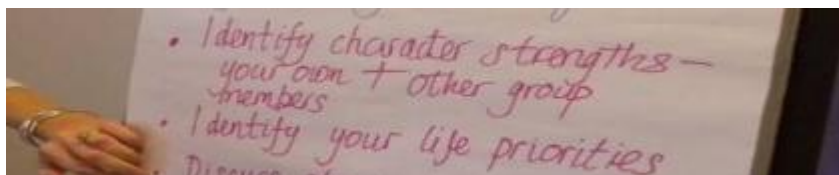 • Identify character strengths —
your own + other group
members
• Identify your life priorities
• Discuss